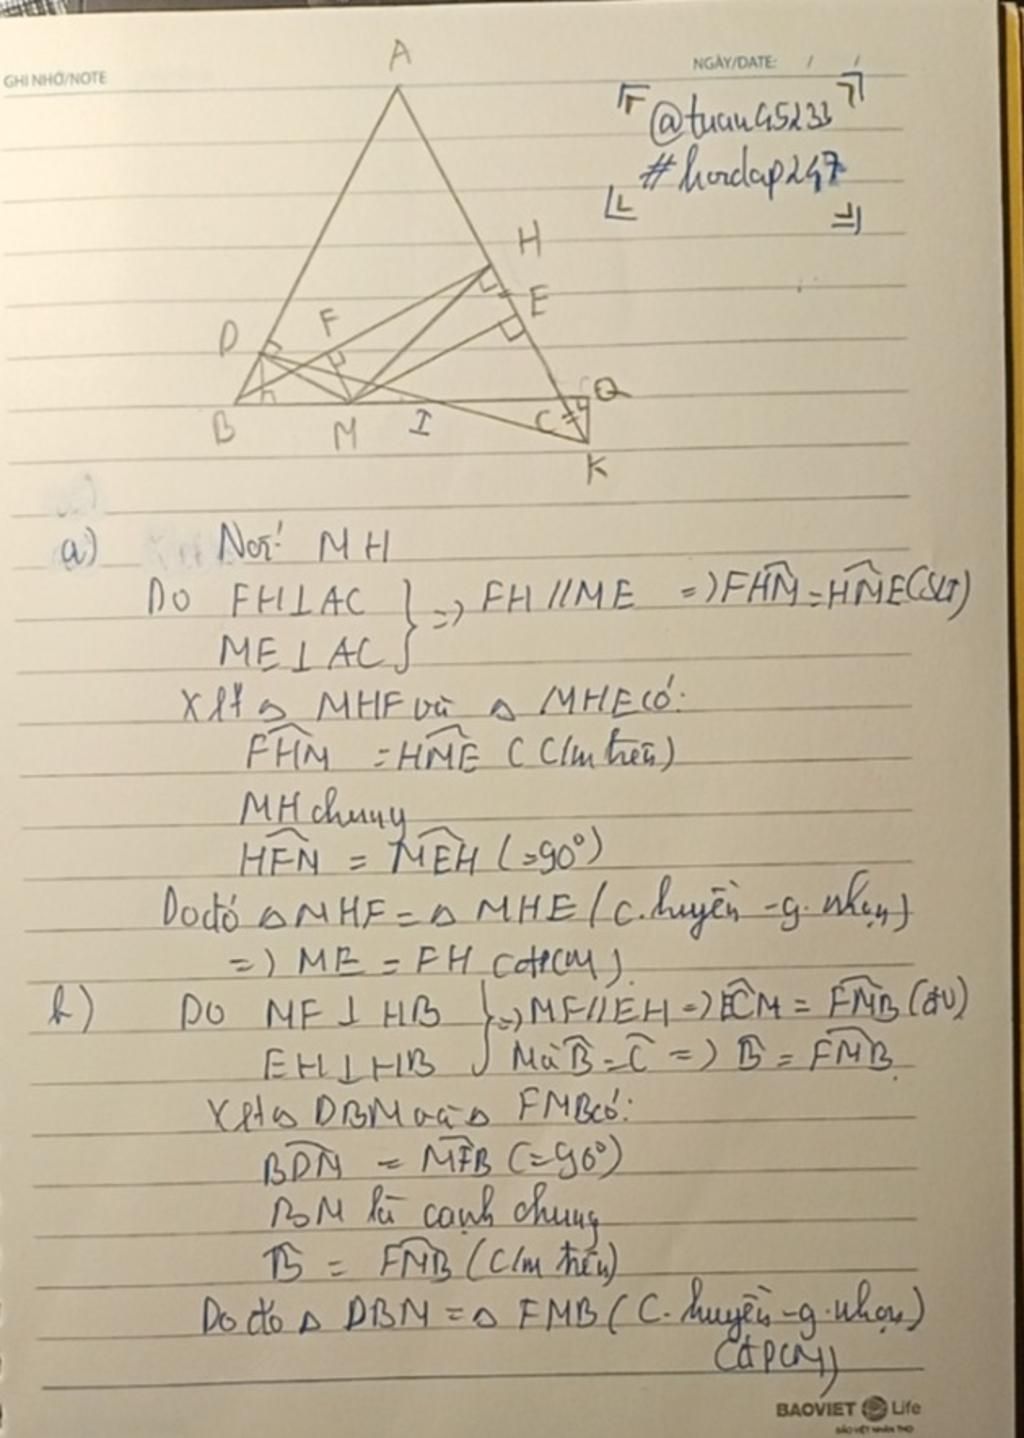 GHI NHỚ/NOTE
NGÀY/DATE: / /
@tuan45233
#hoidap247
A
H
E
F
D
B
M
I
C
Q
K
a) Nối MH
Do FH⊥AC
ME⊥AC
} => FH//ME => FHM = HME (SLT)
Xét △ MHF và △ MHE có:
FHM = HME (C/m trên)
MH chung
HFM = MEH (=90°)
Do đó △MHF = △ MHE (C.huyền - g. nhọn)
=> ME = FH (đPCM)
b) Do MF⊥HB
EH⊥HB
} => MF//EH => ECM = FMB (đV)
Mà B = C => B = FMB
Xét △ DBM và △ FMB có:
BDM = MFB (=90°)
BM là cạnh chung
B = FMB (C/m trên)
Do đó △ DBM = △ FMB (C.huyền - g.nhọn)
(đPCM)
BAOVIET Life
BẢO VIỆT NHÂN THỌ